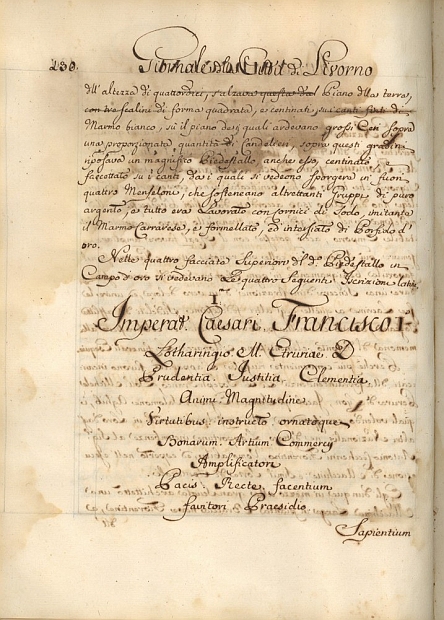 230.
Giornale della Città di Livorno
dll' altezza di quattordeci, s'alzava questa dal Piano dlla terra,
con tre scalini di forma quadrata, e centinati, sui canti finti di
Marmo bianco, su il piano dei quali ardevano grossi Ceri sopra
una proporzionata quantità di Candelieri, sopra questi gradini
riposava un magnifico Piedestallo anche esso, centinato e
faccettato su i canti, da i quali si vedeono sporgere in fuori
quattro Mensoloni, che sosteneano altrettanti Gruppi di puro
argento, e tutto era Lavorato con cornici di Sodo, imitante
il Marmo Carrarese, e formellato, ed intersiato di Porfido d'
oro.
Nelle quattro facciate Superiori dl d.º Piedestallo in
Campo d'oro si vedevano Le quattro seguenti Iscrizioni Latine
I.
Imperat. Caesari Francisco I.
Lotharingio M. Etruriae D
Prudentia Justitia Clementia
Animi Magnitudine
Virtutibus instructo ornatoque
Bonarum Artium Commercij
Amplificatori
Pacis Recte facentium
fautori Praesidio
Sapientium